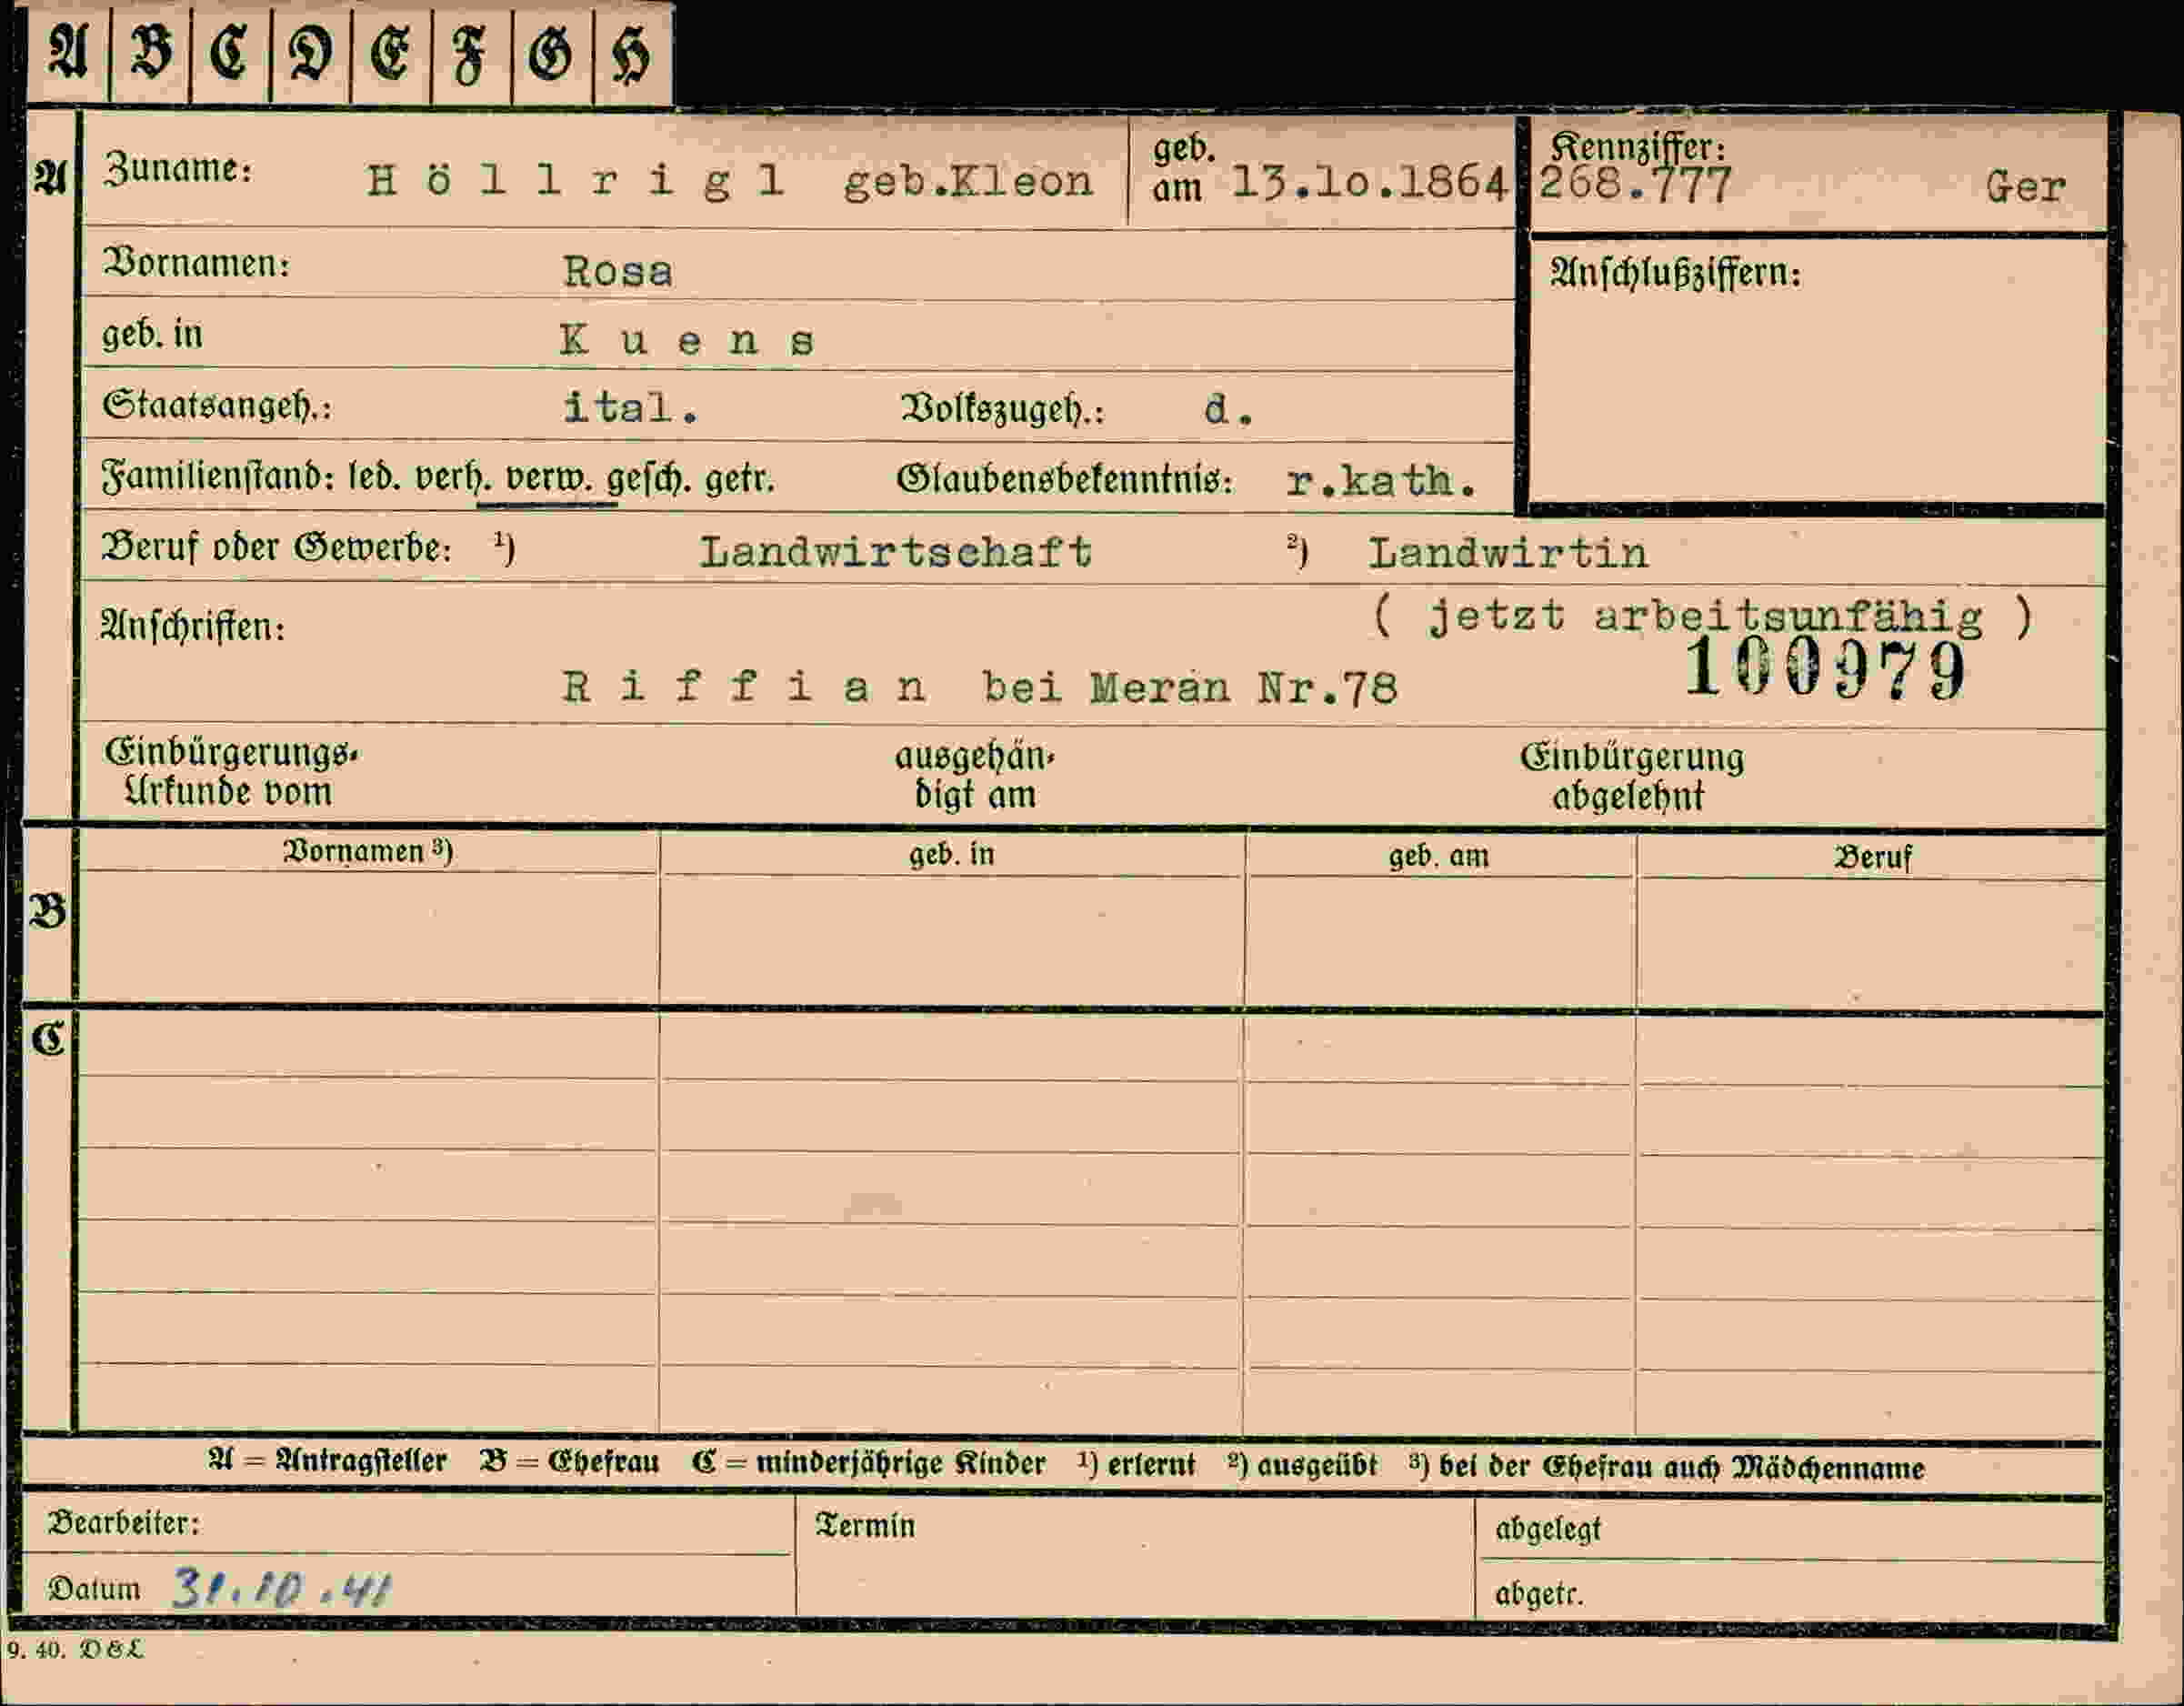 A B C D E F G H
A Zuname: Höllrigl geb.Kleon geb. am 13.lo.1864 Kennziffer: 268.777 Ger
Vornamen: Rosa Anschlußziffern:
geb. in Kuens
Staatsangeh.: ital. Volkszugeh.: d.
Familienstand: led. verh. verw. gesch. getr. Glaubensbekenntnis: r.kath.
Beruf oder Gewerbe: ¹) Landwirtschaft ²) Landwirtin
Anschriften: ( jetzt arbeitsunfähig )
Riffian bei Meran Nr.78 100979
Einbürgerungs- ausgehän- Einbürgerung
Urkunde vom digt am abgelehnt
Vornamen ³) geb. in geb. am Beruf
B
C
A = Antragsteller B = Ehefrau C = minderjährige Kinder ¹) erlernt ²) ausgeübt ³) bei der Ehefrau auch Mädchenname
Bearbeiter: Termin abgelegt
Datum 31.10.41 abgetr.
9. 40. D & L